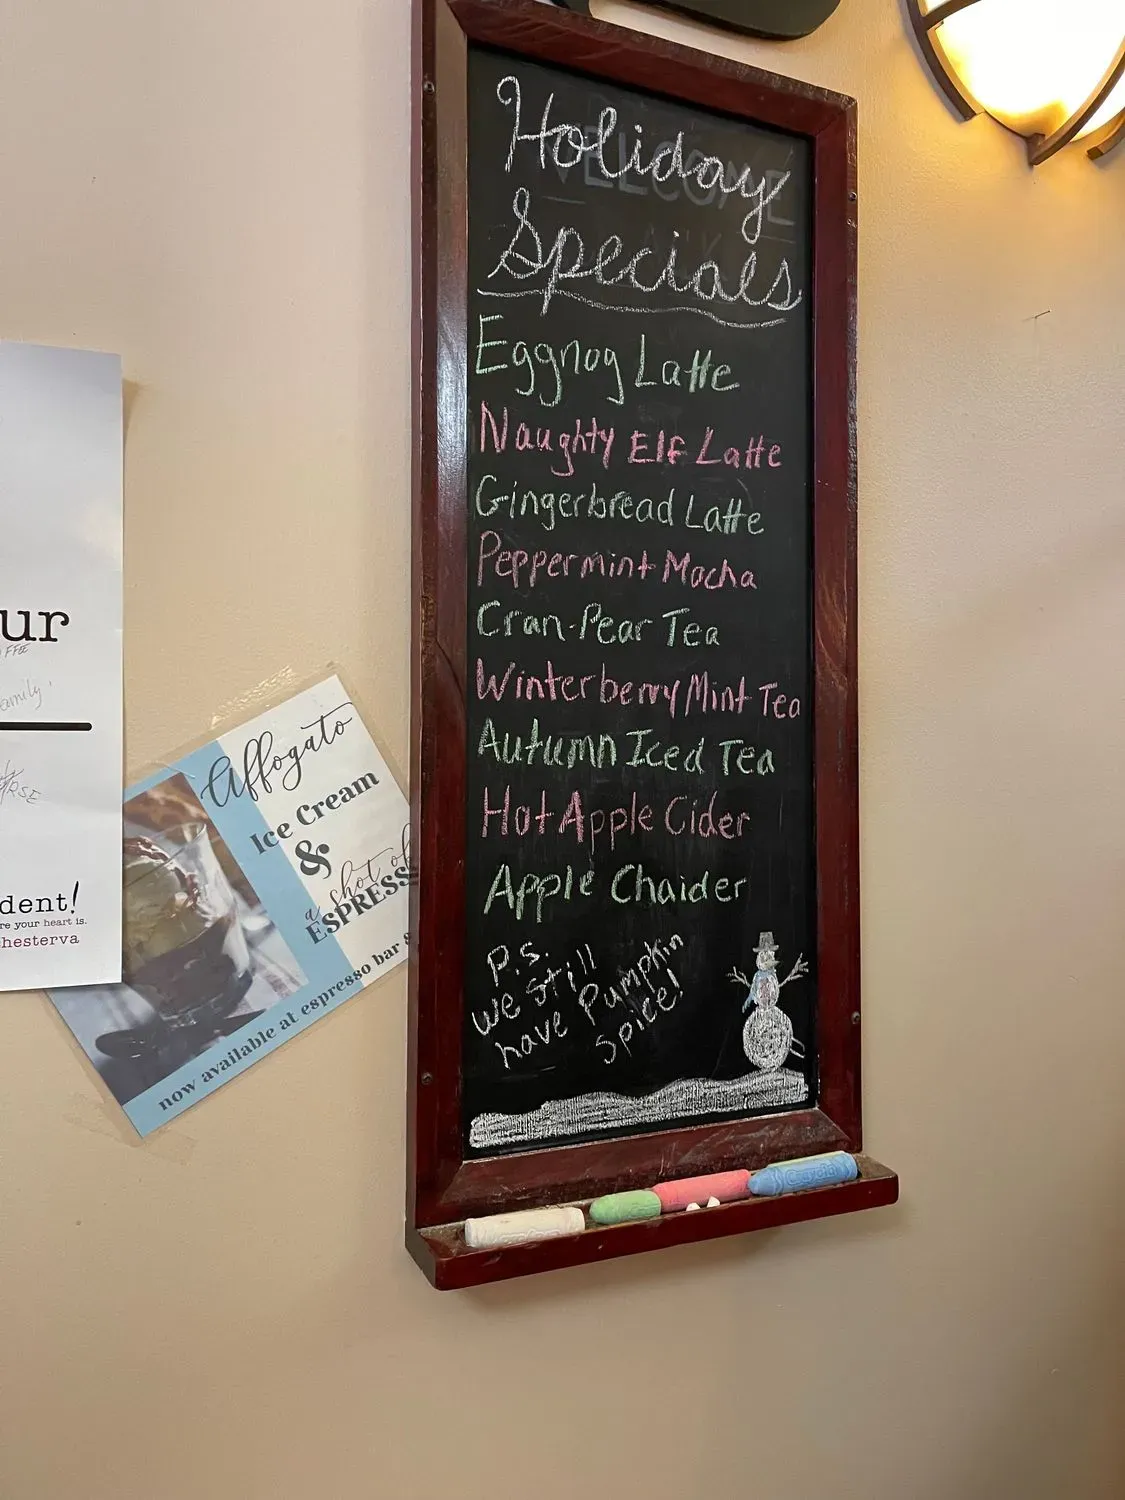 Holiday
Specials
Eggnog Latte
Naughty Elf Latte
Gingerbread Latte
Peppermint Mocha
Cran-Pear Tea
Winterberry Mint Tea
Autumn Iced Tea
Hot Apple Cider
Apple Chaider
P.S.
we still
have Pumpkin
Spice!
WELCOME
ur
amily'
dent!
re your heart is.
hesterva
Affogato
Ice Cream
&
a shot of
ESPRESS
now available at espresso bar &
Crayola